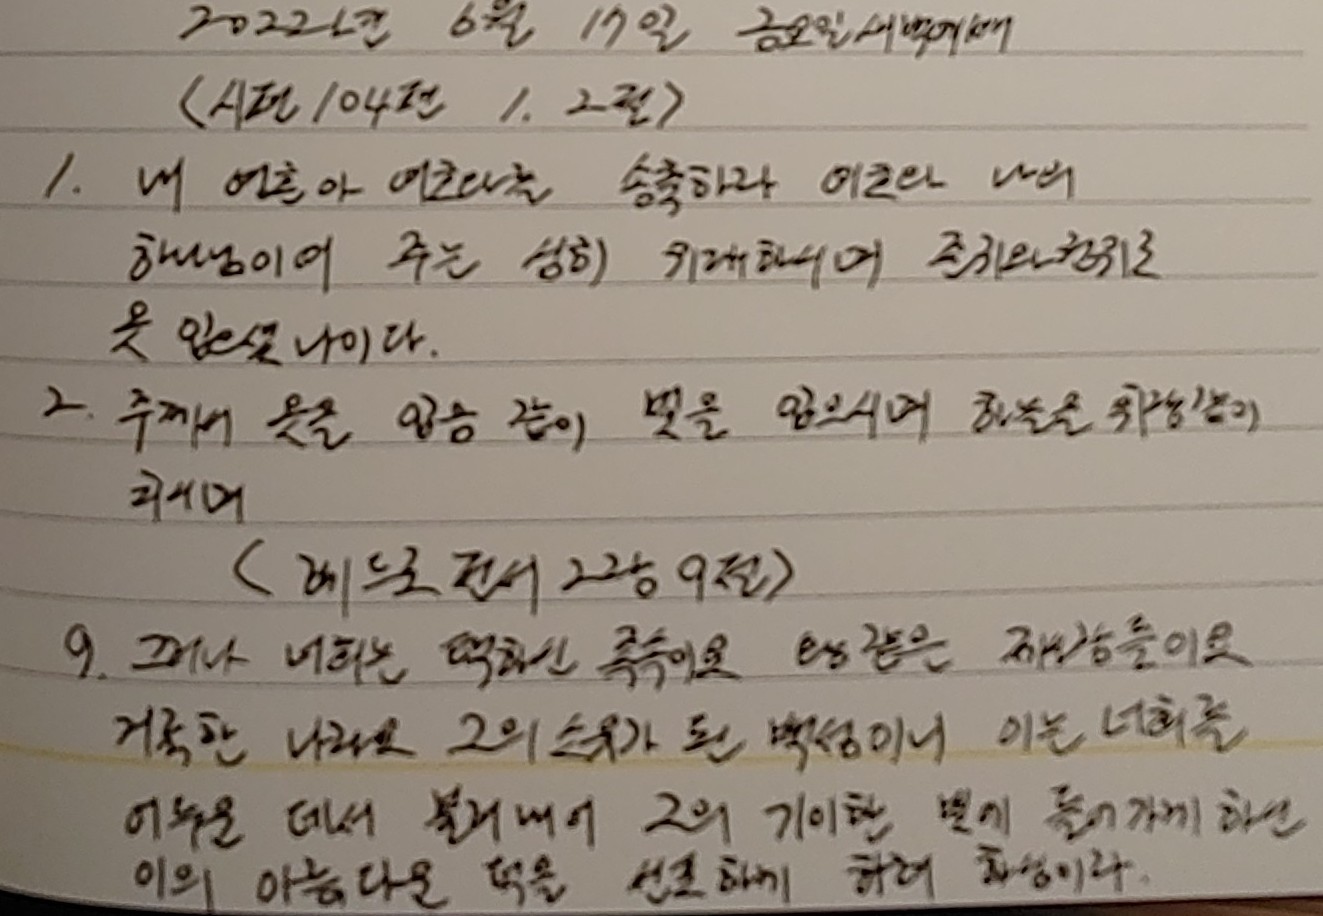 2022년 6월 17일 금요일 새벽예배
<시편 104편 1. 2절>
1. 내 영혼아 여호와를 송축하라 여호와 나의
하나님이여 주는 심히 위대하시며 존귀와 권위로
옷 입으셨나이다.
2. 주께서 옷을 입음 같이 빛을 입으시며 하늘을 휘장같이
치시며
<베드로 전서 2장 9절>
9. 그러나 너희는 택하신 족속이요 왕 같은 제사장들이요
거룩한 나라요 그의 소유가 된 백성이니 이는 너희를
어두운 데서 불러내어 그의 기이한 빛에 들어가게 하신
이의 아름다운 덕을 선포하게 하려 하심이라.